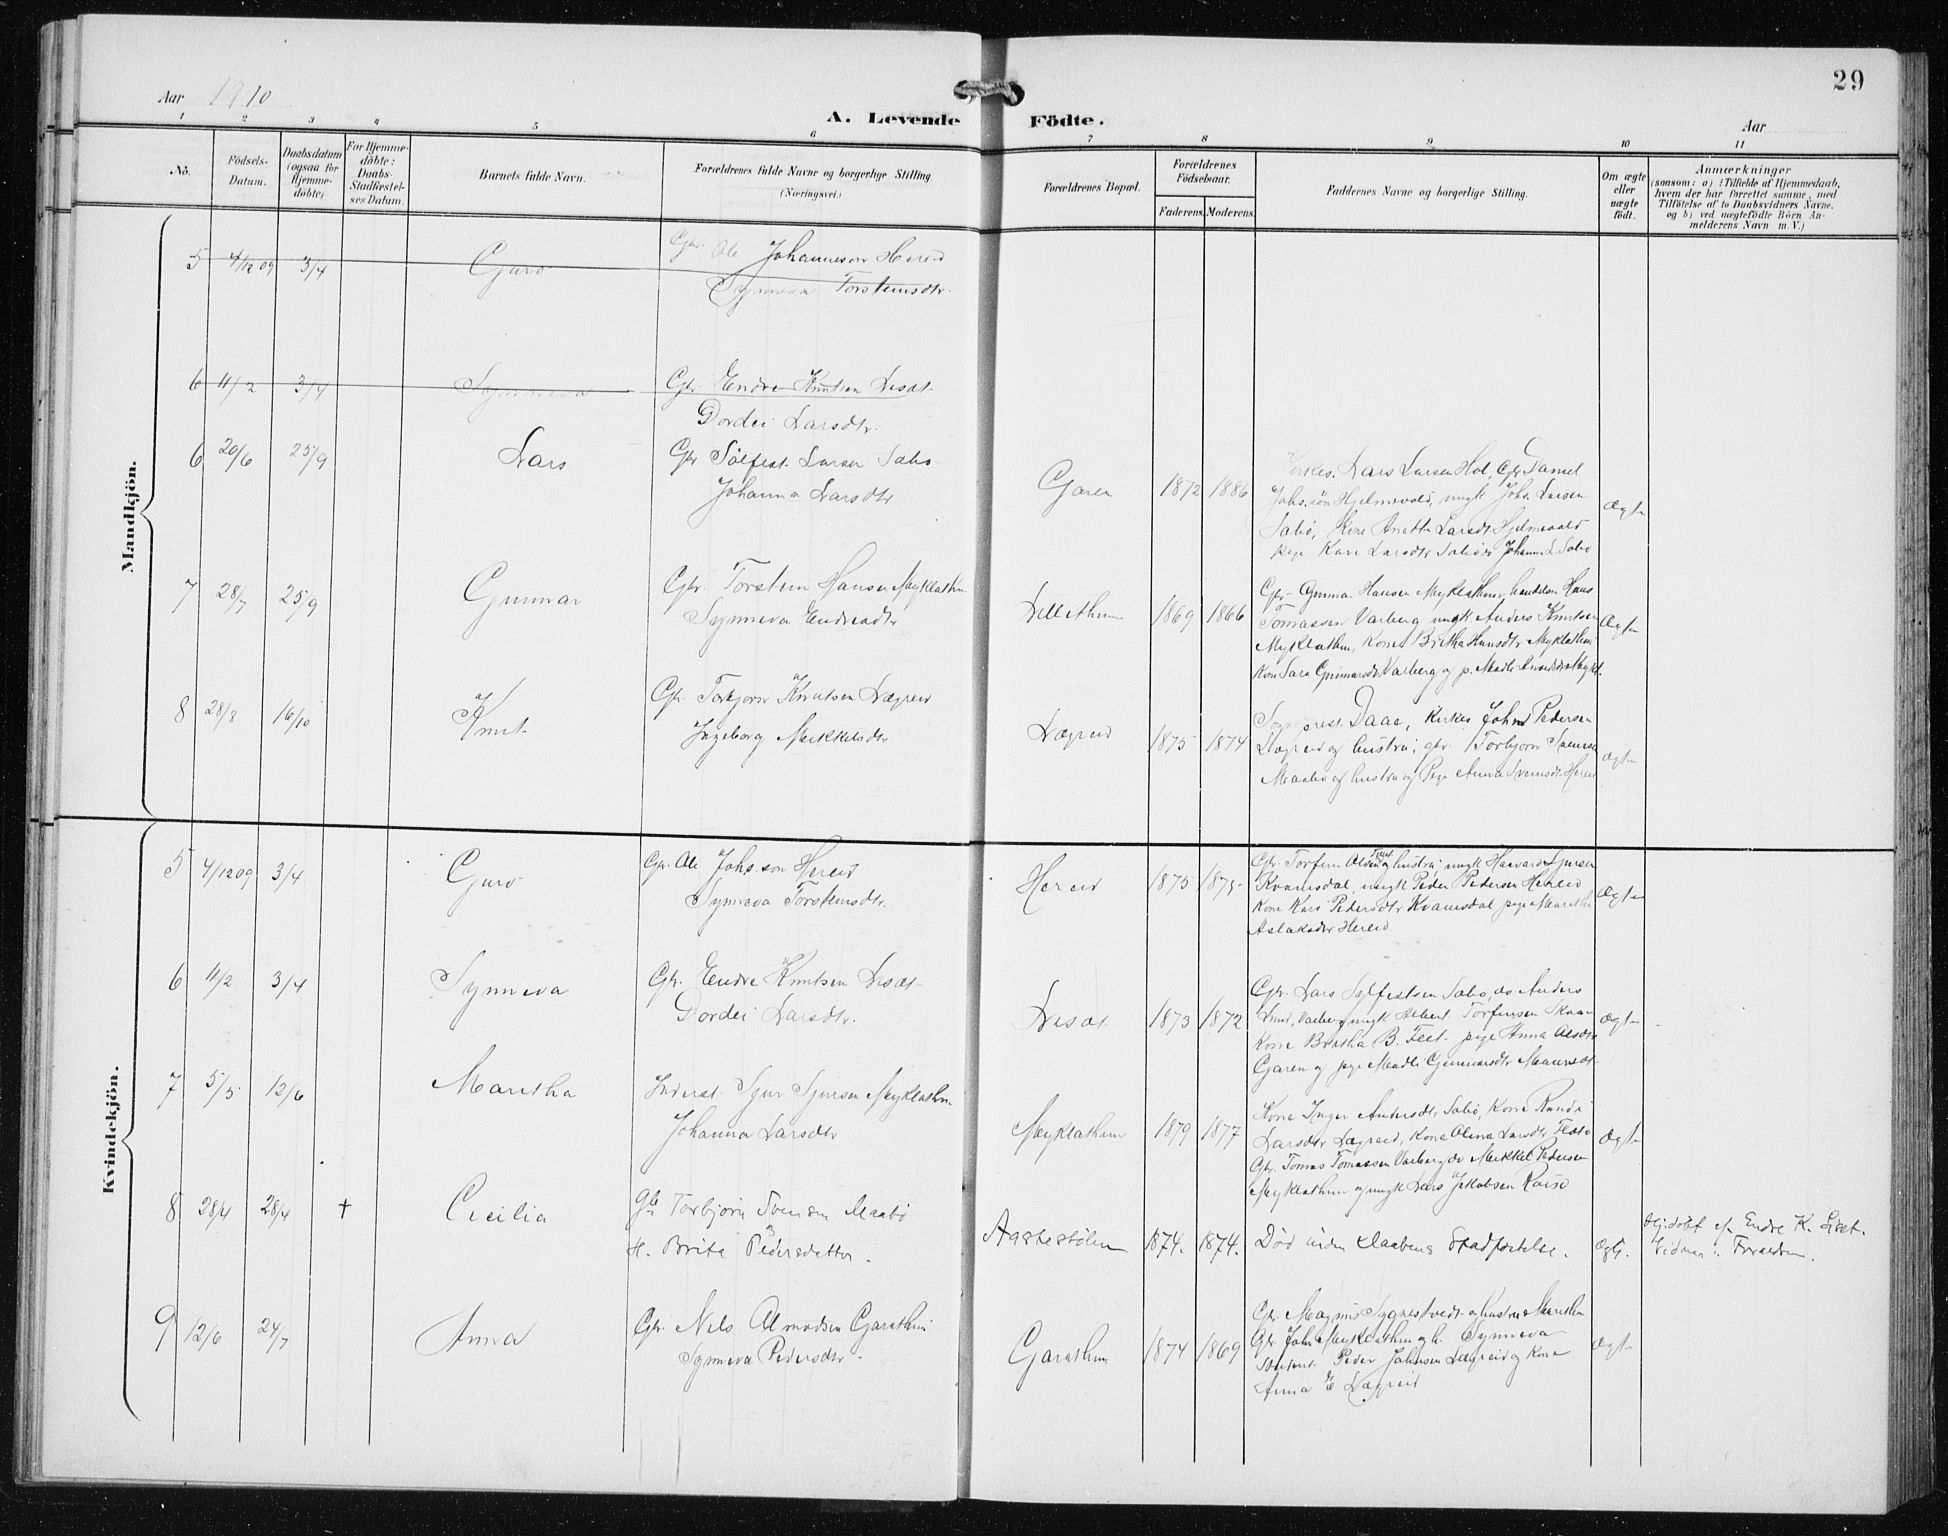 29
Aar 1910
A. Levende Födte.
Aar
1 2 3 4 5 6 7 8 9 10 11
No.
Födsels-Datum.
Daabsdatum (ogsaa for Hjemme-döbte)
For Hjemme-döbte: Daabs-Stadfæstel-ses Datum.
Barnets fulde Navn.
Forældrenes fulde Navne og borgerlige Stilling. (Næringsvei.)
Forældrenes Bopæl.
Forældrenes Födselsaar.
Faderens. Moderens.
Faddernes Navne og borgerlige Stilling.
Om ægte eller uægte födt.
Anmærkninger
(saasom: a) i Tilfælde af Hjemmedaab,
hvem der har forrettet samme, med
Tilföielse af to Daabsvidners Navne.
og b) ved uægtefödte Börn An-
melderens Navn m. V.)
Mandkjön.
5 4/12 09 3/4 Guro Gbr. Ole Johanneson Hereid
Synneva Torsteinsdtr.
6 11/2 3/4 Synneva Gbr. Endre Knutsen Lisæt
Dordei Larsdtr.
6 20/6 25/9 Lars Gbr Sölfest Larsen Sæbö
Johanna Larsdtr
Garen 1872 1886
Kirkes. Lars Larsen Hol, Gbr. Daniel
Johs.sön Hjelmevold, ungk Johs. Larsen
Sæbö, Kone Anetta Larsdt Hjelmevold
pige Kari Larsdtr Sæbö Johanna L. Sæbö
Ægte
7 28/7 25/9 Gunnar Gbr. Torstein Hansen Myklathun
Synneva Endresdtr
Lillethun 1869 1866
Gbr Gunnar Hansen Myklathun, handelsm Hans
Tomassen Varberg ungk. Anders Knutsen
Myklathun, Kone Britha Hansdtr Myklathun
Kone Sara Gunnarsdtr. Varberg og p. Madli
Ægte
8 28/8 16/10 Knut Gbr. Torbjorn Knutsen Lægreid
Ingeborg Mikkelsdtr
Lægreid 1875 1874
Sogneprest Daae, Kirkes John Pedersen
Lægreid og hustru; gbr Torbjorn Svensen
Maabö og hustru og Pige Anna Svensdt. Hereid
Ægte
Kvindekjön.
5 4/12 09 3/4 Guro Gbr. Ole Johs.son Hereid
Synneva Torsteinsdtr.
Hereid 1875 1875
Gbr. Torfinn Olsen Feet og hustru; ungk Haavard Sjursen
Kvamsdal, ungk Peder Pedersen Hereid
Kone Kari Pedersdtr Kvamsdal pige Maritha
Aslaksdtr Hereid
Ægte
6 11/2 3/4 Synneva Gbr. Endre Knutsen Lisæt
Dordei Larsdtr.
Lisæt 1873 1872
Gbr. Lars Sylfestsen Sæbö, do Anders
Lund, Varberg, ungk Helbert Torfinsen Skaar
Kone Britha B. Feet. pige Anna Olsdtr
Garen og pige Madli Gunnarsdtr Maurset
Ægte
7 5/5 12/6 Maritha Inderst Sjur Sjursen Myklathun
Johanna Larsdtr
Myklathun 1879 1877
Kone Inger Andersdtr Sæbö, Kone Randi
Larsdtr Lægreid, Kone Olina Larsdtr Flatö
Gbr. Tomas Tomassen Varberg do Mikkel Pedersen
Myklathun og ungk Lars Jakobsen Röisö
Ægte
8 28/4 28/4 † Cecilia Gbr Torbjörn Svensen Maabö
H. Brita Pedersdatter.
Aastestölen 1874. 1874. Död inden Daabens Stadfæstelse. Ægte.
Hj.döbt af Endre K. Liset.
Vidner: Forældrene.
9 12/6 24/7 Anna Gbr. Nils Olmodsen Garathun
Synneva Pedersdtr.
Garathun 1874 1869
Gbr. Magnus Sygnestveit og hustru Maritha
Gbr. John Myklathun og h. Synneva
Peder Johnsen Lægreid og Kone
Anna E Lægreid
Ægte